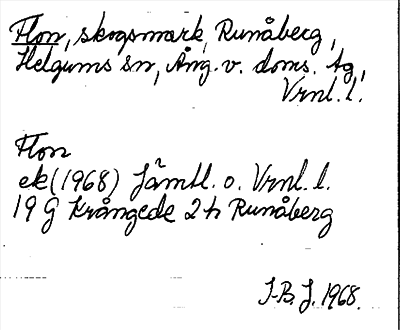 Flon, skogsmark, Runåberg,
Helgums sn, Ång. v. doms. tg,
Vrnl. l.
Flon
ek (1968) Jämtl. o. Vrnl. l.
19 G Krångede 2 h Runåberg
J-B. J. 1968.